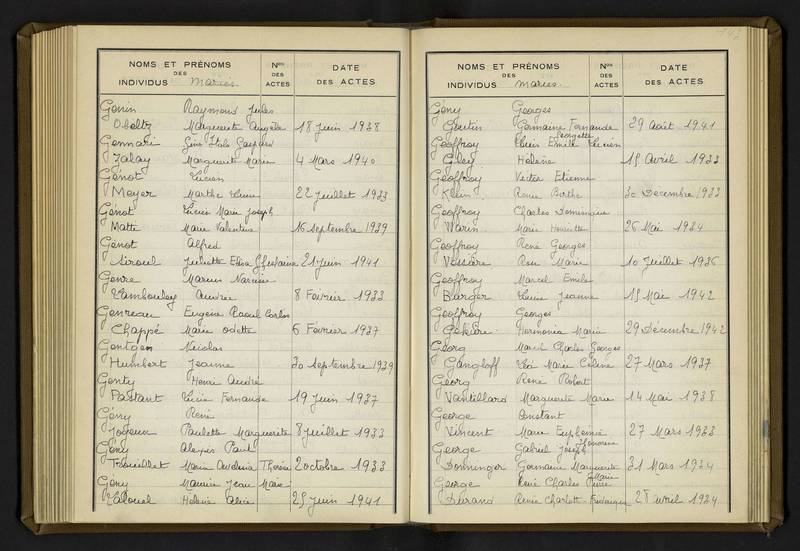 NOMS ET PRÉNOMS Nos DATE
DES DES
INDIVIDUS Mariés. ACTES DES ACTES
Genin Raymond Jules
Marguerite Angèle 18 Juin 1938
Gennari Gino Italo Gaspard
Zalay Marguerite Marie 4 Mars 1940
Génot Lucien
Meyer Marthe 22 Juillet 1933
Génot Lucien Marie Joseph
Matte Marie Valentine 16 Septembre 1939
Génot Alfred
Juliette Elisa Ghislaine 21 Juin 1941
Genre Marius Narcisse
Andrée 8 Février 1933
Genreau Eugène Raoul Carlos
Chappé Marie Odette 6 Février 1937
Gentgen Nicolas
Humbert Jeanne 30 Septembre 1939
Genty Henri André
Pastant Lucie Fernande 19 Juin 1937
Gény René
Joyeux Paulette Marguerite 8 Juillet 1933
Gény Alexis Paul
Marie Thérèse 2 Octobre 1933
Gény Maurice Jean Marie
Hélène Alice 25 Juin 1941
NOMS ET PRÉNOMS Nos DATE
DES DES
INDIVIDUS Mariés. ACTES DES ACTES
Gény Georges
Germaine Fernande Georgette 29 Août 1941
Geoffroy Louis Emile Lucien
Gley Hélène 15 Avril 1933
Geoffroy Victor Etienne
Klein Renée Berthe 30 Décembre 1933
Geoffroy Charles Dominique
Warin Marie Henriette 26 Mai 1934
Geoffroy René Georges
Marie 10 Juillet 1936
Geoffroy Marcel Emile
Burger Jeanne 15 Mai 1942
Geoffroy Georges
Marie 29 Décembre 1942
Georg Marcel Charles Georges
Gangloff Marie Céline 27 Mars 1937
Georg René Robert
Vantillard Marguerite Marie 14 Mai 1938
George Constant
Vincent Marie Euphémie 27 Mars 1933
George Gabriel Joseph
Donminger Germaine Marguerite 31 Mars 1934
George René Charles Pierre Marie
Durand Renée Charlotte 28 Avril 1934